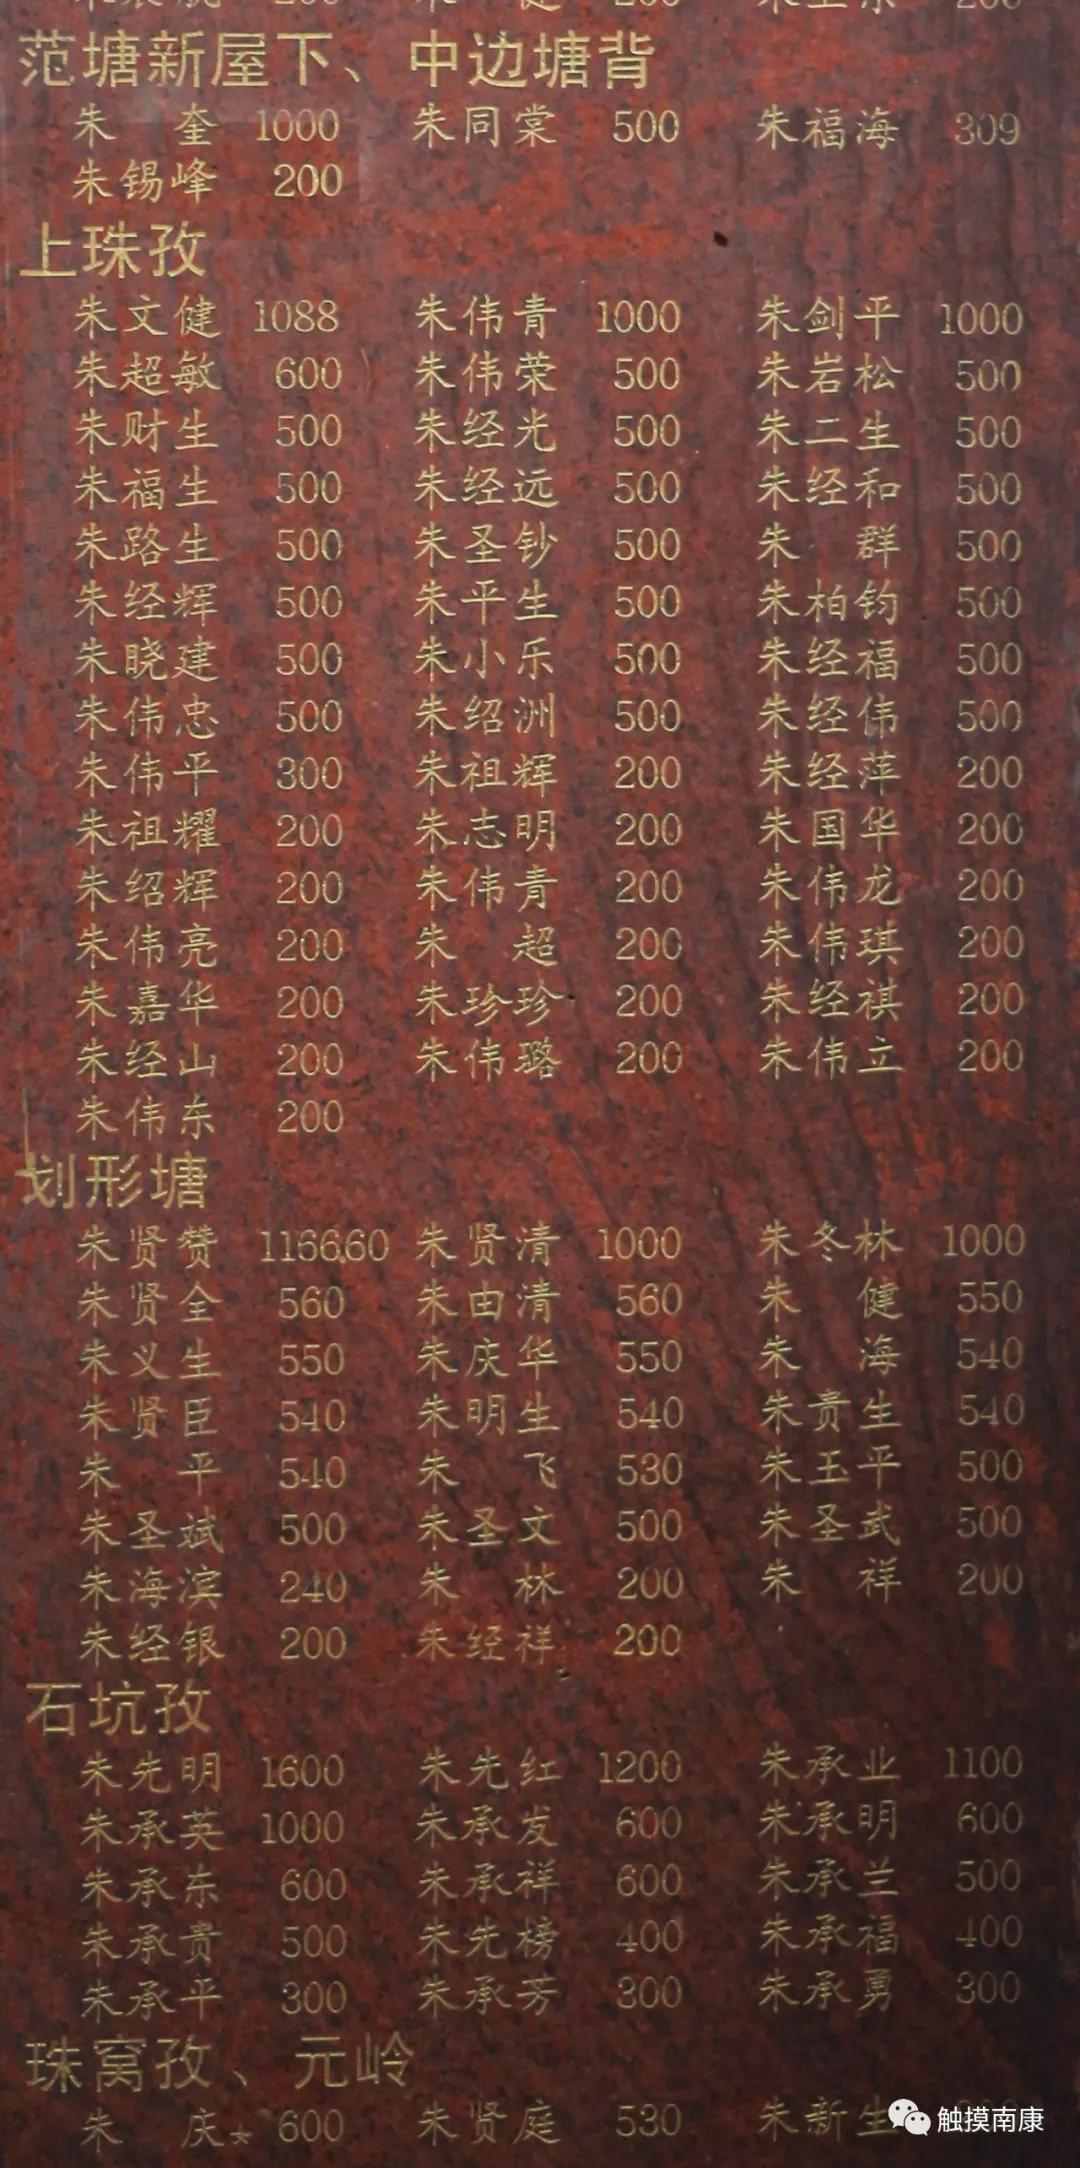 范塘新屋下、中边塘背
朱奎 1000 朱同棠 500 朱福海 309
朱锡峰 200
上珠孜
朱文健 1088 朱伟青 1000 朱剑平 1000
朱超敏 600 朱伟荣 500 朱岩松 500
朱财生 500 朱经光 500 朱二生 500
朱福生 500 朱经远 500 朱经和 500
朱路生 500 朱圣钞 500 朱群 500
朱经辉 500 朱平生 500 朱柏钧 500
朱晓建 500 朱小乐 500 朱经福 500
朱伟忠 500 朱绍洲 500 朱经伟 500
朱伟平 300 朱祖辉 200 朱经萍 200
朱祖耀 200 朱志明 200 朱国华 200
朱绍辉 200 朱伟青 200 朱伟龙 200
朱伟亮 200 朱超 200 朱伟琪 200
朱嘉华 200 朱珍珍 200 朱经祺 200
朱经山 200 朱伟璐 200 朱伟立 200
朱伟东 200
划形塘
朱贤赞 1166.60 朱贤清 1000 朱冬林 1000
朱贤全 560 朱由清 560 朱健 550
朱义生 550 朱庆华 550 朱海 540
朱贤臣 540 朱明生 540 朱贵生 540
朱平 540 朱飞 530 朱玉平 500
朱圣斌 500 朱圣文 500 朱圣武 500
朱海滨 240 朱林 200 朱祥 200
朱经银 200 朱经祥 200
石坑孜
朱先明 1600 朱先红 1200 朱承业 1100
朱承英 1000 朱承发 600 朱承明 600
朱承东 600 朱承祥 600 朱承兰 500
朱承贵 500 朱先榜 400 朱承福 400
朱承平 300 朱承芳 300 朱承勇 300
珠窝孜、元岭
朱庆 600 朱贤庭 530 朱新生
触摸南康